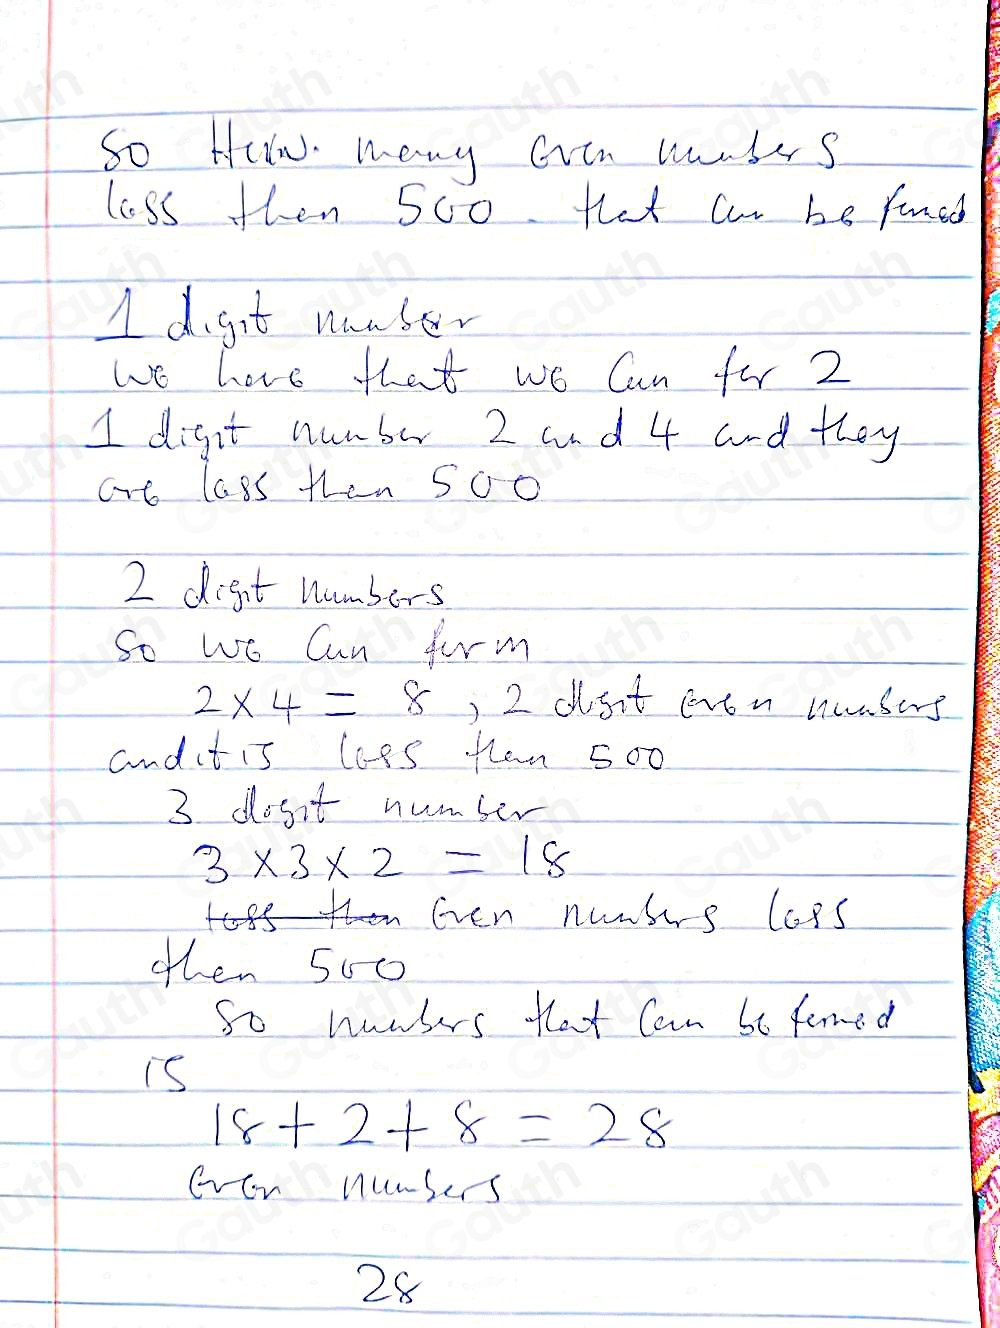 So How many even numbers
less than 500 that can be formed
1 digit number
we have that we can for 2
1 digit number 2 and 4 and they
are less than 500
2 digit numbers
So we can form
2 × 4 = 8 , 2 digit even numbers
and it is less than 500
3 digit number
3 × 3 × 2 = 18
less than even numbers less
then 500
So numbers that can be formed
is
18 + 2 + 8 = 28
even numbers
28